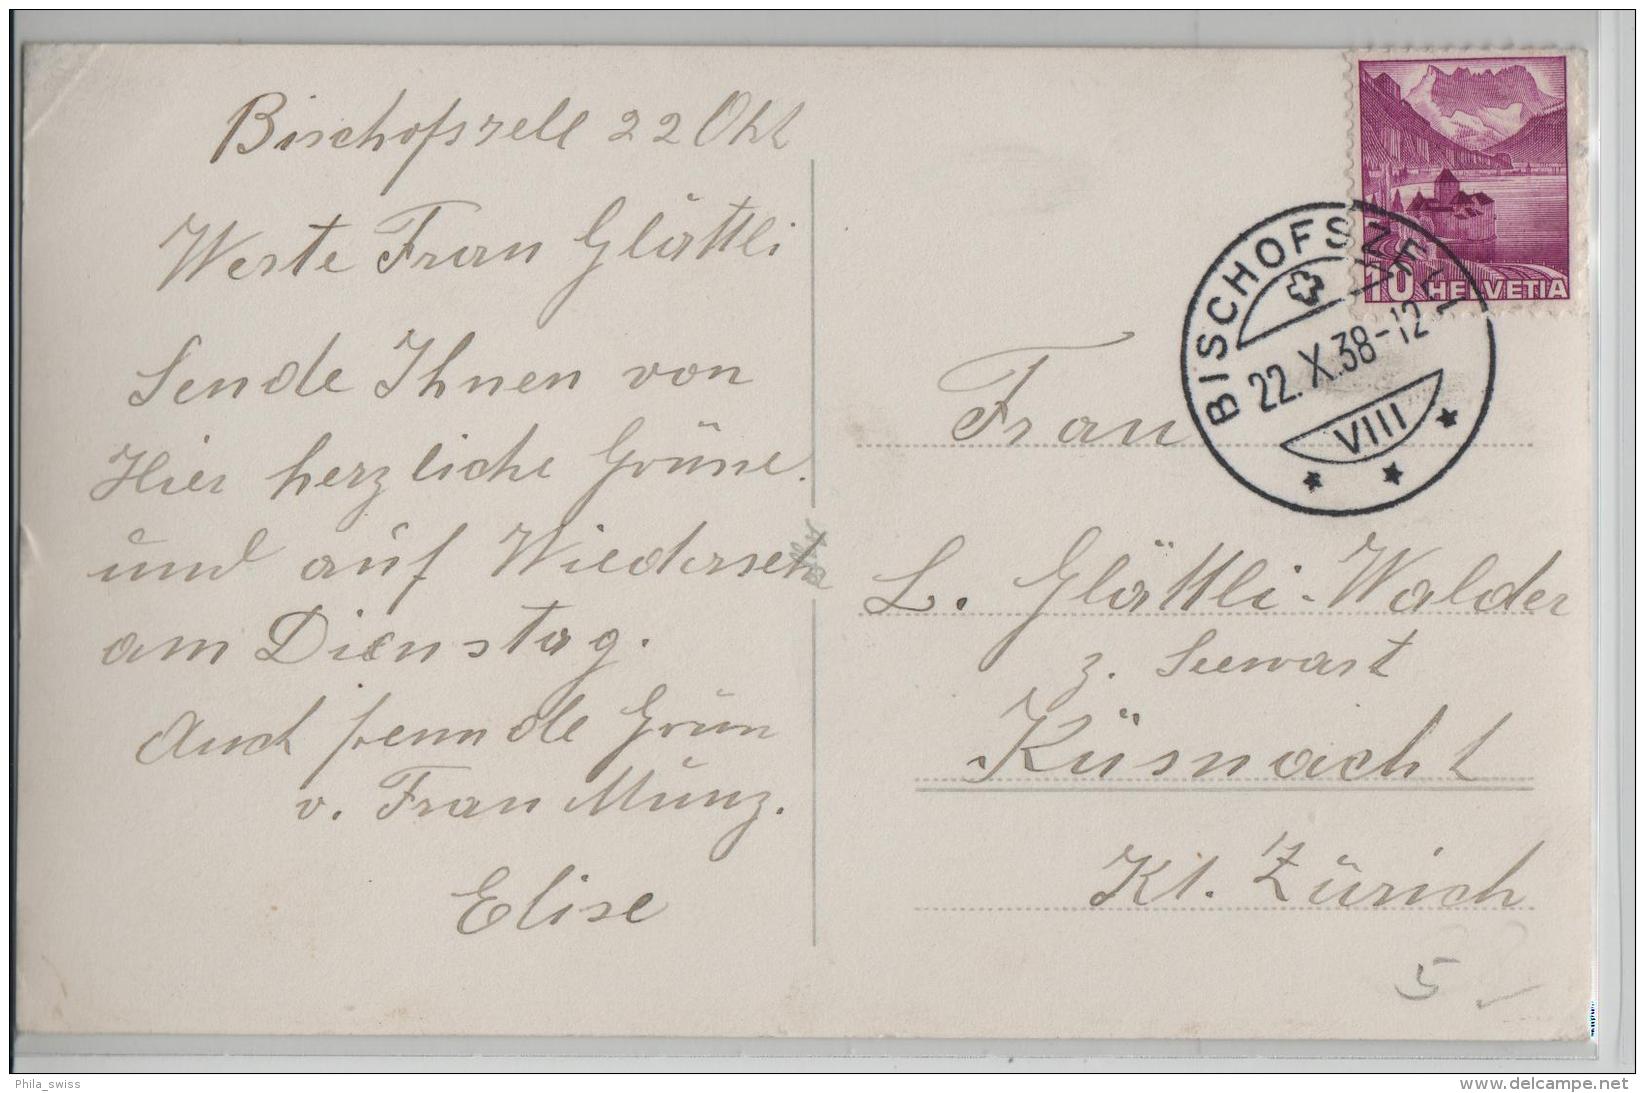 Bischofszell 22 Okt
Werte Frau Glättli
Sende Ihnen von
Hier herzliche Grüsse.
und auf Wiederseh
am Dienstag.
Auch freundl Grüss
v. Frau Münz.
Elise
10 HELVETIA
BISCHOFSZELL
22.X.38-12
VIII
Frau
L. Glättli-Walder
z. Seewart
Küsnacht
Kt. Zürich
5
Phila_swiss
www.delcampe.net